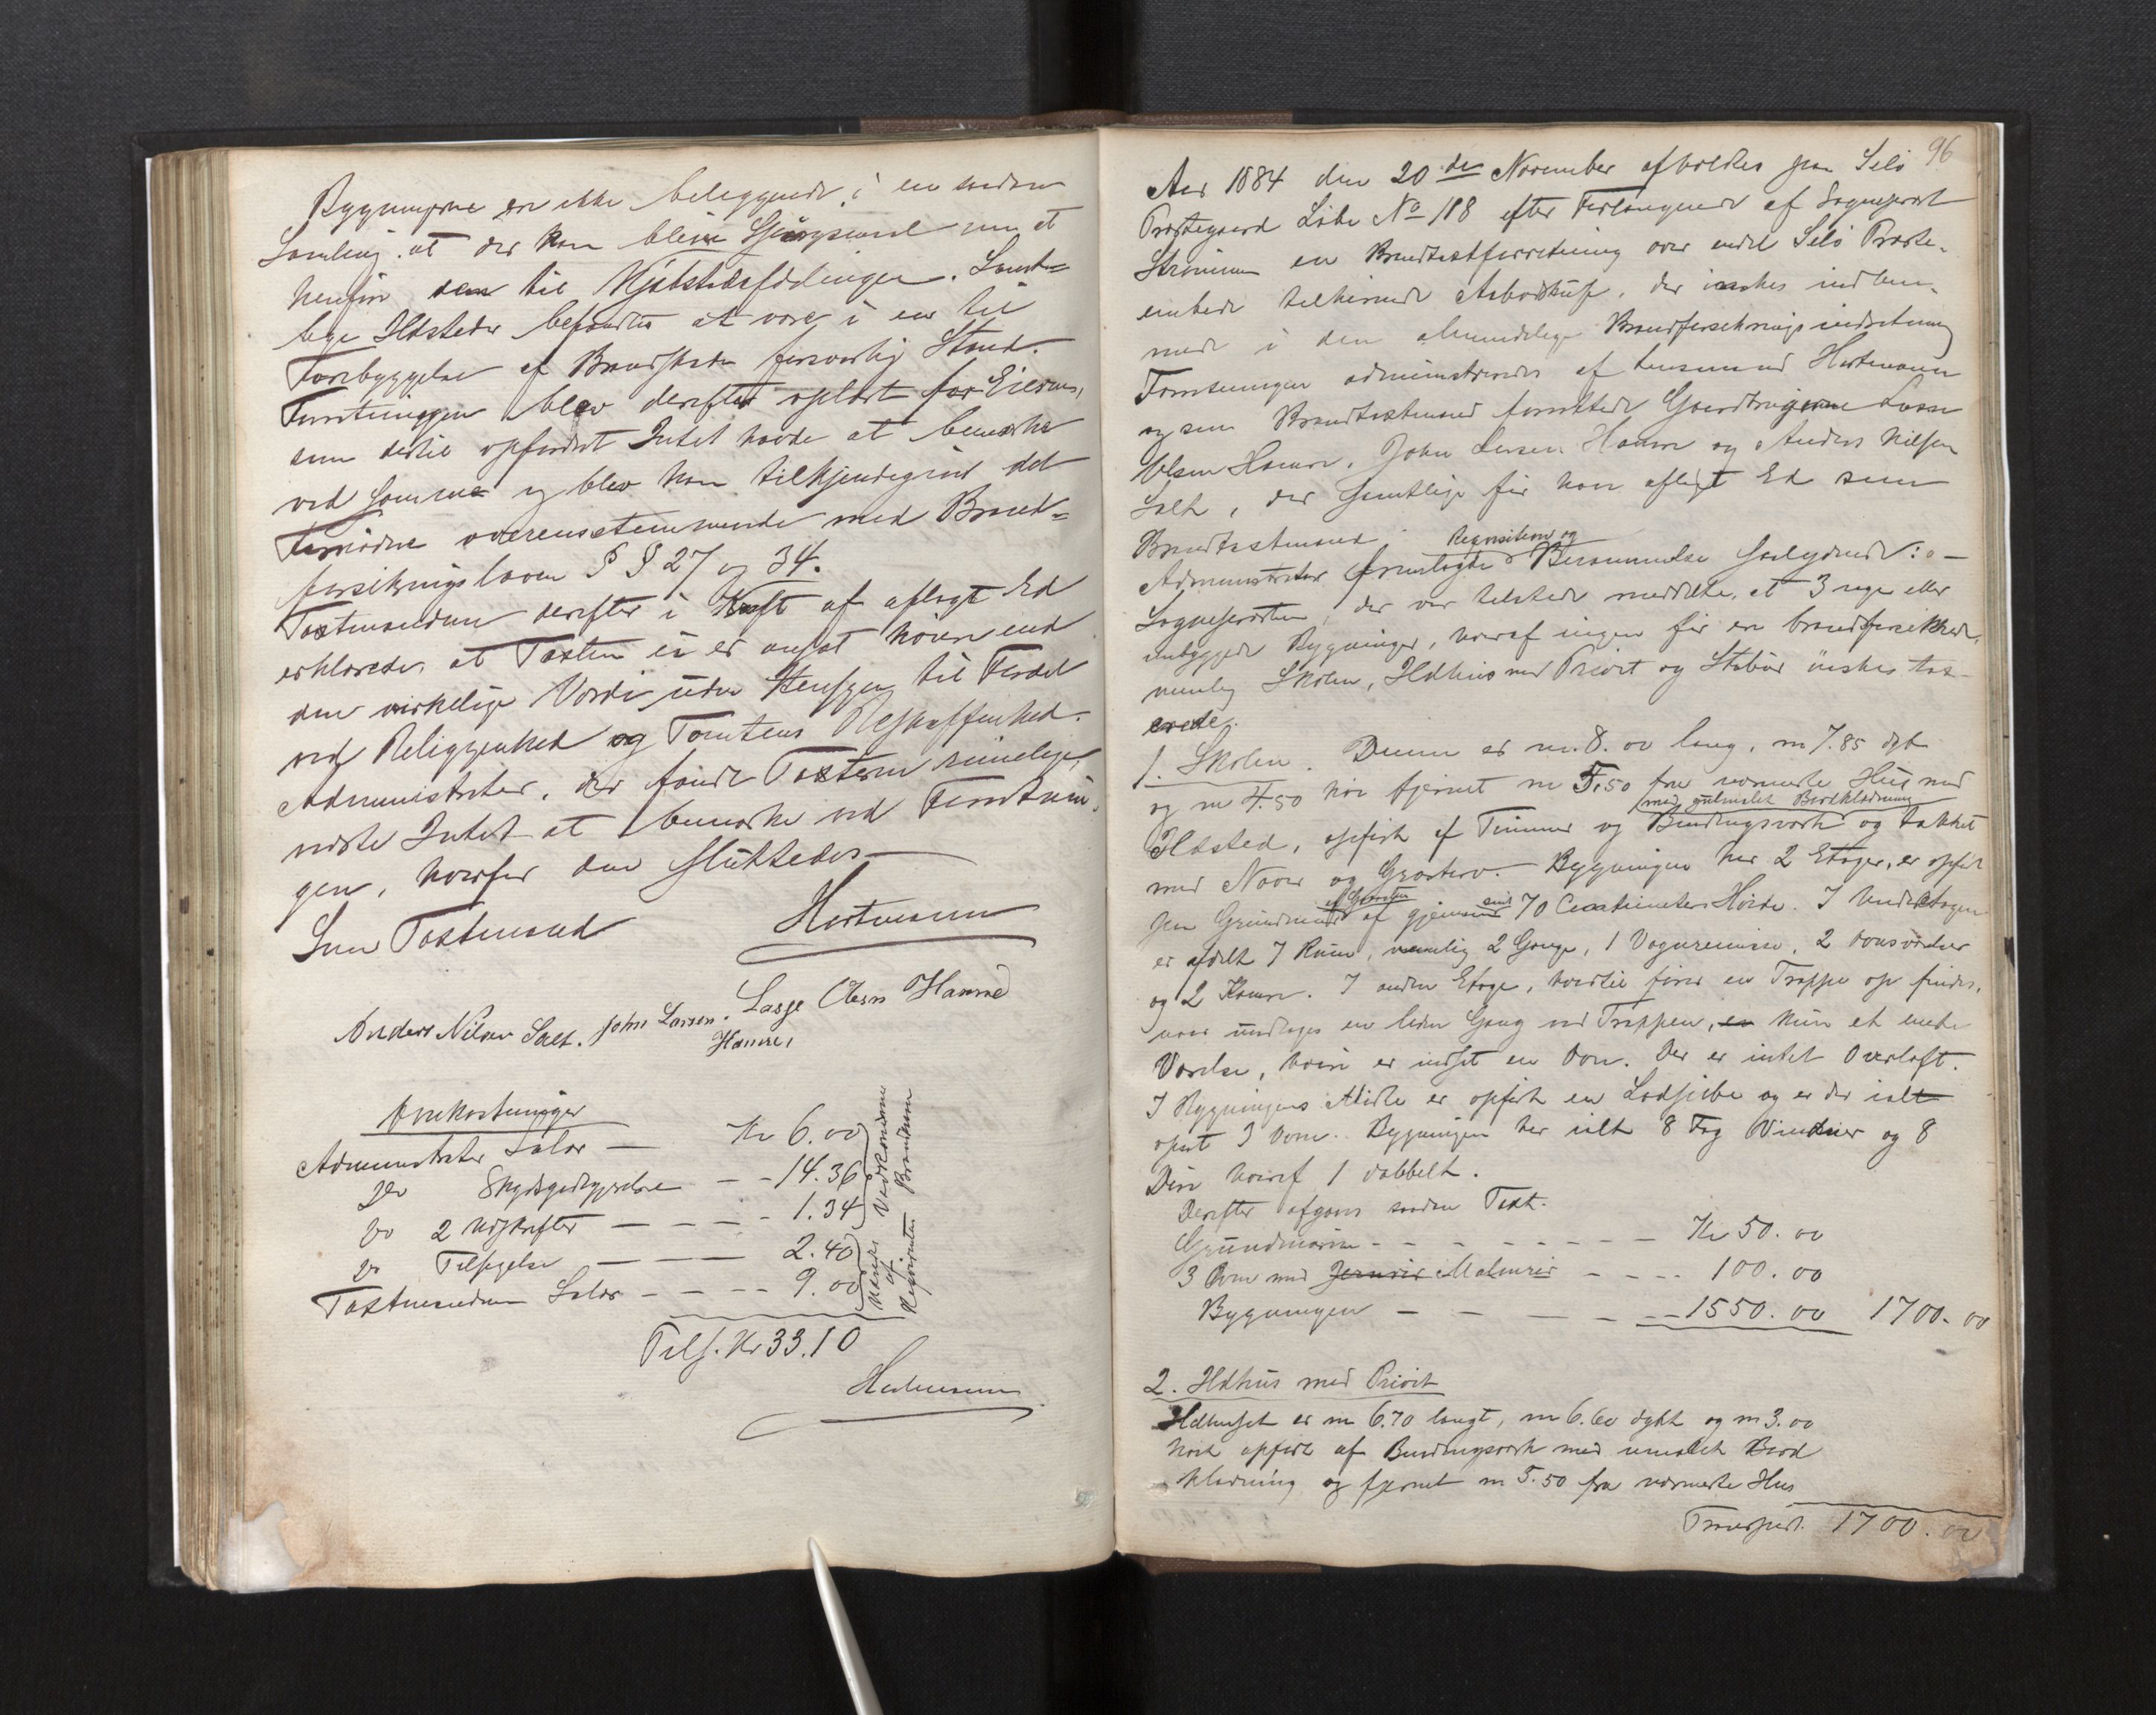 Bygningerne ere ikke beliggende i en saadan
Samling at der kan blive Spørgsmaal om at
henføre dem til Kjøbstadsfdelingen. Samt=
lige Ildsteder befandtes at være i en til
Forebyggelse af Brandskade forsvarlig Stand.
Forretningen blev derefter oplæst for Eieren,
som dertil opfordret Intet havde at bemærke
ved samme og blev ham tilkjendegivet det
Fornødne overensstemmende med Brand=
forsikringsloven § § 27 og 34.
Taxtmændene derefter i Kraft af aflagt Ed
erklærede, at Taxten ei er ansat høiere end
den virkelige Værdi uden Hensyn til Fordel
ved Beliggenhed og Tomtens Beskaffenhed.
Administrator, der fandt Taxterne rimelige,
vidste Intet at bemærke ved Forretnin-
gen, hvorfor den sluttedes
Hartmann
Som Taxtmænd
Anders Nilsen Salt. John Larsen. Lasse Olsen Hamre
Hamre,
Omkostninger
Administrator Salær — Kr 6.00
Do Skydsgodtgjørelse — - 14.36
Do 2 Udskrifter — — — - 1.34
Do Tilsigelse — — — 2.40
Taxtmændene Salær - - - - 9.00
af Vedkommende
Reqvirenten Brandkassen
Tils. Kr 33.10
Hartmann
96
Aar 1884 den 20de November afholdtes paa Selö
Præstegaard Løbe No 118 efter Forlangende af Sognepræst
Strömme en Brandtaxtforretning over endel Selö Præste-
embede tilhørende Aabodshuse, der ønskes indlem-
mede i den almindelige Brandforsikringsindretning
Forretningen administreredes af Lensmand Hartmann
og som Brandtaxtmænd forrettede Gaardbrugerne Lasse
Olsen Hamre, John Larsen Hamre og Anders Nilsen
Salt, der samtlige før have aflagt Ed som
Brandtaxtmænd.
Reqvisition og
Administrator fremlagde Berammelse saalydende: o —
Sognepræsten, der var tilstede meddelte, at 3 nye eller
ombyggede Bygninger, hvoraf ingen før er brandforsikrede,
nemlig Skolen, Ildhus med Privet og Stabur ønskes tax-
erede.
1. Skolen. Denne er m. 8.00 lang, m 7.85 dyb
og m 4.50 høi fjernet m 5.50 fra nærmeste Hus med
med gulmalet Bordklædning
Ildsted, opført af Tømmer og Bindingsværk og takket
med Næver og Græstorv. Bygningen har 2 Etager, er opført
af Graasten snit
paa Grundmur af gjennem 70 Centimeters Høide. I Underetagen
er afdelt 7 Rum, nemlig 2 Gange, 1 Vognremisse, 2 Værelser
og 2 Kamre. I anden Etage, hvortil fører en Trappe op findes,
naar undtages en liden Gang ved Trappen, kun et eneste
Værelse, hvori er indsat en Ovn. Der er intet Overloft.
I Bygningens Midte er opført en Lodpibe og er der ialt
opsat 3 Ovne. Bygningen har ialt 8 Fag Vinduer og 8
Døre hvoraf 1 dobbelt.
Derefter afgaves saadan Taxt.
Grundmuren - - - - - - - — Kr 50.00
3 Ovne med Jernrør Malmrør - - - - 100.00
Bygningen — — — — - - 1550.00 1700.00
2. Ildhus med Privet
Ildhuset er m 6.70 langt, m 6.60 dybt og m 3.00
høit opført af Bindingsværk med umalet Bord
klædning og fjernet m 5.50 fra nærmeste Hus
Transport. 1700.00